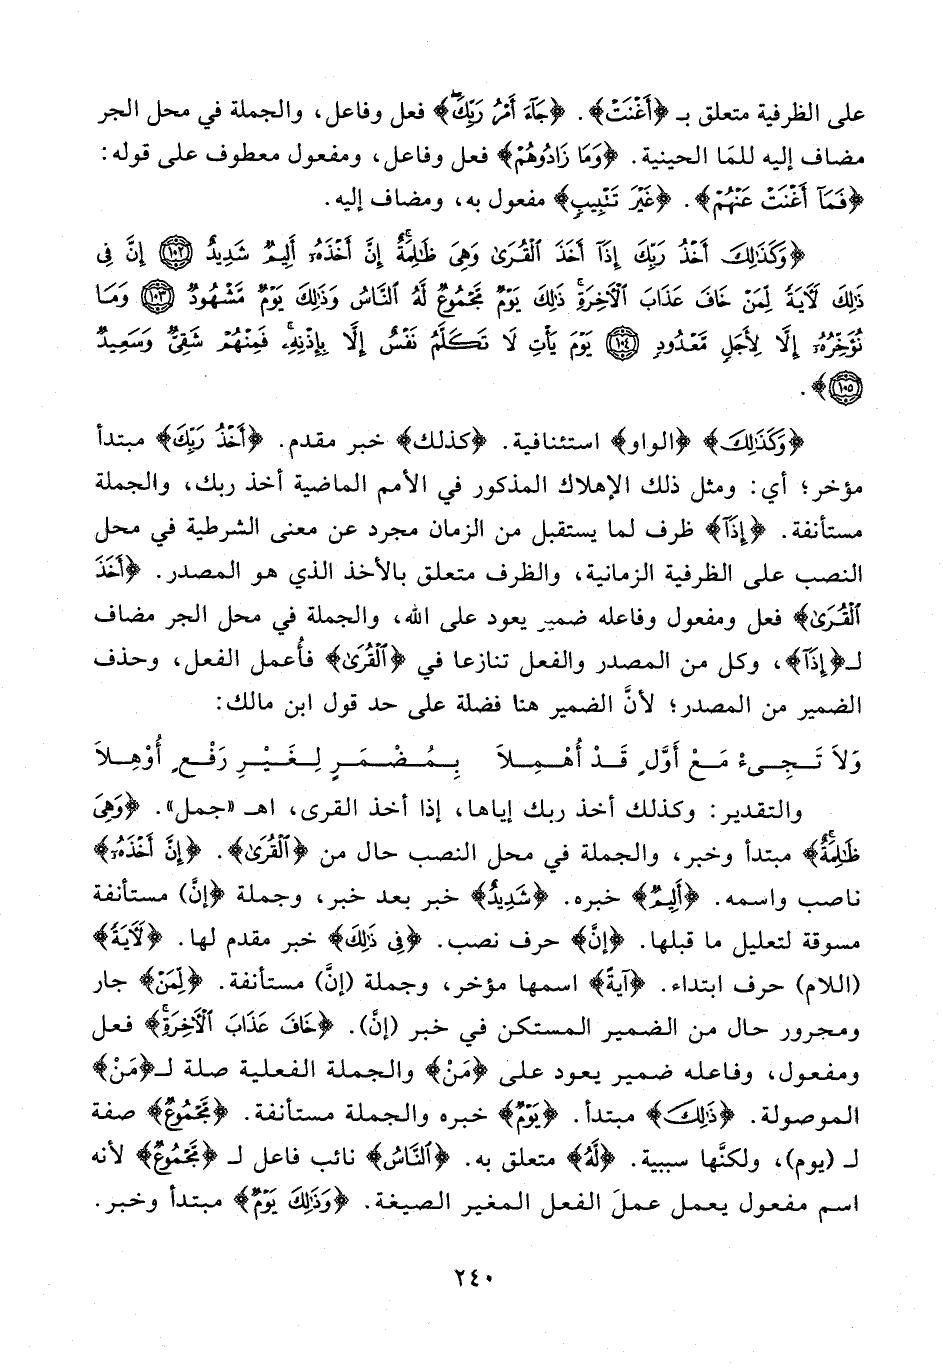 على الظرفية متعلق بـ ﴿أَغْنَتْ﴾. ﴿جَآءَ أَمْرُ رَبِّكَۖ﴾ فعل وفاعل، والجملة في محل الجر
مضاف إليه للمّا الحينية. ﴿وَمَا زَادُوهُمْ﴾ فعل وفاعل، ومفعول معطوف على قوله:
﴿فَمَآ أَغْنَتْ عَنْهُمْ﴾. ﴿غَيْرَ تَتْبِيبٍ﴾ مفعول به، ومضاف إليه.
﴿وَكَذَٰلِكَ أَخْذُ رَبِّكَ إِذَآ أَخَذَ ٱلْقُرَىٰ وَهِىَ ظَٰلِمَةٌۚ إِنَّ أَخْذَهُۥٓ أَلِيمٌ شَدِيدٌ ١٠٢ إِنَّ فِى
ذَٰلِكَ لَآيَةً لِّمَنْ خَافَ عَذَابَ ٱلْآخِرَةِۚ ذَٰلِكَ يَوْمٌ مَّجْمُوعٌ لَّهُ ٱلنَّاسُ وَذَٰلِكَ يَوْمٌ مَّشْهُودٌ ١٠٣ وَمَا
نُؤَخِّرُهُۥٓ إِلَّا لِأَجَلٍ مَّعْدُودٍ ١٠٤ يَوْمَ يَأْتِ لَا تَكَلَّمُ نَفْسٌ إِلَّا بِإِذْنِهِۦۚ فَمِنْهُمْ شَقِىٌّ وَسَعِيدٌ
١٠٥﴾.
﴿وَكَذَٰلِكَ﴾ ﴿الواو﴾ استئنافية. ﴿كذلك﴾ خبر مقدم. ﴿أَخْذُ رَبِّكَ﴾ مبتدأ
مؤخر؛ أي: ومثل ذلك الإهلاك المذكور في الأمم الماضية أخذ ربك، والجملة
مستأنفة. ﴿إِذَآ﴾ ظرف لما يستقبل من الزمان مجرد عن معنى الشرطية في محل
النصب على الظرفية الزمانية، والظرف متعلق بالأخذ الذي هو المصدر. ﴿أَخَذَ
ٱلْقُرَىٰ﴾ فعل ومفعول وفاعله ضمير يعود على الله، والجملة في محل الجر مضاف
لـ﴿إِذَآ﴾، وكل من المصدر والفعل تنازعا في ﴿ٱلْقُرَىٰ﴾ فأُعمل الفعل، وحذف
الضمير من المصدر؛ لأنَّ الضمير هنا فضلة على حد قول ابن مالك:
وَلاَ تَجِىءْ مَعْ أَوَّلٍ قَدْ أُهْمِلاَ بِمُضْمَرٍ لِغَيْرِ رَفْعٍ أُوْهِلاَ
والتقدير: وكذلك أخذ ربك إياها، إذا أخذ القرى، اهـ «جمل». ﴿وَهِىَ
ظَٰلِمَةٌۚ﴾ مبتدأ وخبر، والجملة في محل النصب حال من ﴿ٱلْقُرَىٰ﴾. ﴿إِنَّ أَخْذَهُۥٓ﴾
ناصب واسمه. ﴿أَلِيمٌ﴾ خبره. ﴿شَدِيدٌ﴾ خبر بعد خبر، وجملة ﴿إنَّ) مستأنفة
مسوقة لتعليل ما قبلها. ﴿إنَّ﴾ حرف نصب. ﴿فِى ذَٰلِكَ﴾ خبر مقدم لها. ﴿لَآيَةً﴾
(اللام) حرف ابتداء. ﴿آيةً﴾ اسمها مؤخر، وجملة (إنَّ) مستأنفة. ﴿لِّمَنْ﴾ جار
ومجرور حال من الضمير المستكن في خبر (إنَّ). ﴿خَافَ عَذَابَ ٱلْآخِرَةِۚ﴾ فعل
ومفعول، وفاعله ضمير يعود على ﴿مَنْ﴾ والجملة الفعلية صلة لـ﴿مَنْ﴾
الموصولة. ﴿ذَٰلِكَ﴾ مبتدأ. ﴿يَوْمٌ﴾ خبره والجملة مستأنفة. ﴿مَّجْمُوعٌ﴾ صفة
لـ (يوم)، ولكنَّها سببية. ﴿لَّهُ﴾ متعلق به. ﴿ٱلنَّاسُ﴾ نائب فاعل لـ ﴿مَّجْمُوعٌ﴾ لأنه
اسم مفعول يعمل عملَ الفعل المغير الصيغة. ﴿وَذَٰلِكَ يَوْمٌ﴾ مبتدأ وخبر.
٢٤٠